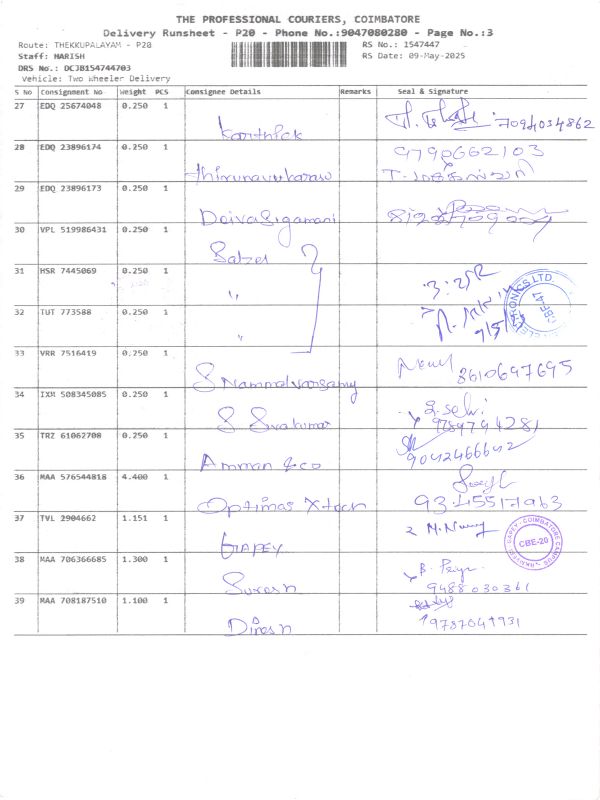 THE PROFESSIONAL COURIERS, COIMBATORE
Delivery Runsheet - P20 - Phone No.:9047080280 - Page No.:3
Route: THEKKUPALAYAM - P20 RS No.: 1547447
Staff: HARISH RS Date: 09-May-2025
DRS No.: DCJB154744703
Vehicle: Two Wheeler Delivery
S No Consignment No Weight PCS Consignee Details Remarks Seal & Signature
27 EDQ 25674048 0.250 1
Karthick 7094034862
28 EDQ 23896174 0.250 1 9790662103
Thirunavukarasu
29 EDQ 23896173 0.250 1
DaivaSigamani
30 VPL 519986431 0.250 1
Balzer
31 HSR 7445069 0.250 1 3:25
"
32 TUT 773588 0.250 1 9/5/25
"
33 VRR 7516419 0.250 1 8610697695
S Nammalvarsamy
34 IXM 508345085 0.250 1 S. Selvi
S Sivakumar 9789794281
35 TRZ 61062708 0.250 1
Amman & co 9042466642
36 MAA 576544818 4.400 1
Optimas Xtech 9345517963
37 TVL 2904662 1.151 1
GAPEY CBE-20
38 MAA 706366685 1.300 1 B. Priya
Suresh 9488030361
39 MAA 708187510 1.100 1
Dinesh 9787041931